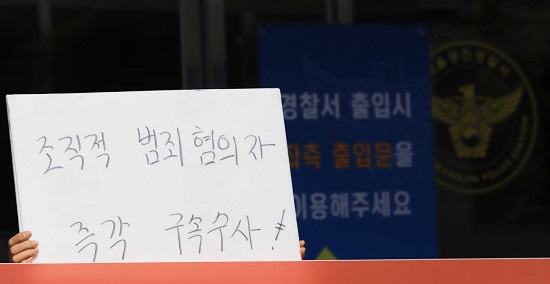 조직적 범죄 혐의자
즉각 구속수사!
경찰서 출입시
좌측 출입문을
이용해주세요